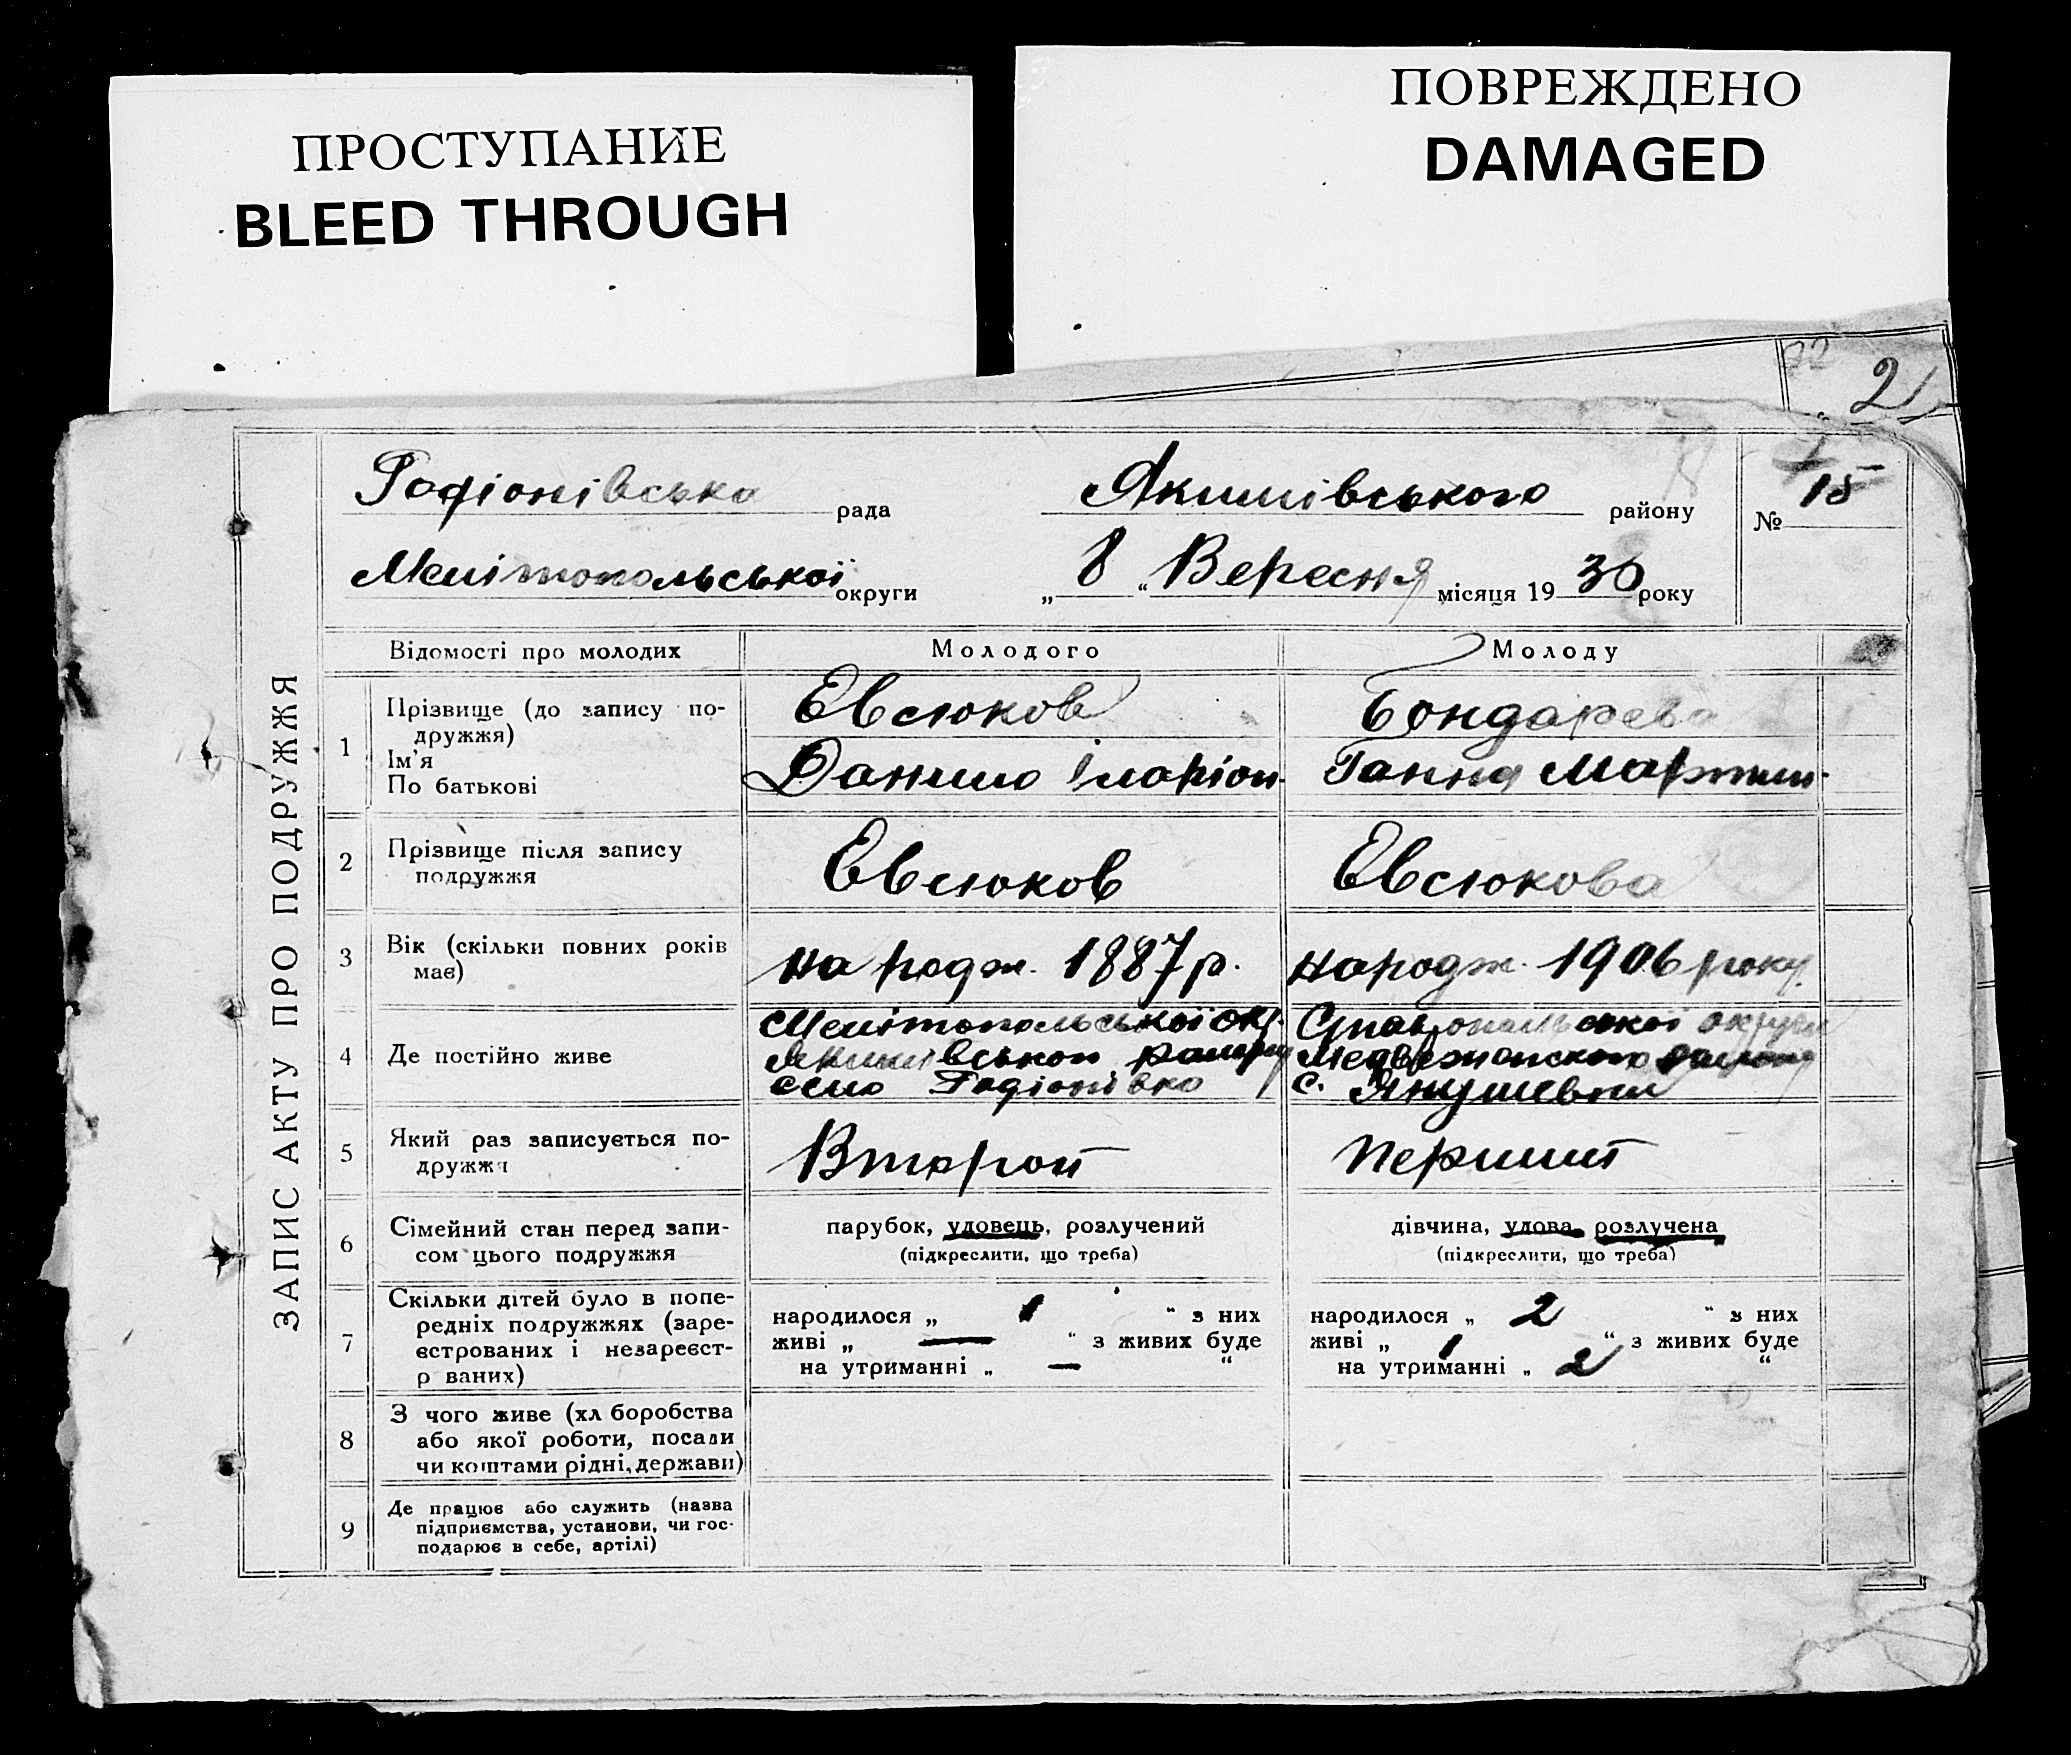 ПРОСТУПАНИЕ
BLEED THROUGH
ПОВРЕЖДЕНО
DAMAGED
2
ЗАПИС АКТУ ПРО ПОДРУЖЖЯ
Родіонівська рада Якимівського району № 15
Мелітопольської округи „ 8 “ Вересня місяця 1930 року
Відомості про молодих Молодого Молоду
1 Прізвище (до запису по-
дружжя)
Ім'я
По батькові
Евсюков
Данило Іларіон.
Бондарева
Ганна Мартин.
2 Прізвище після запису
подружжя
Евсюков
Евсюкова
3 Вік (скільки повних років
має)
народж. 1887 р.
народж. 1906 року
4 Де постійно живе
Мелітопольської окр.
Якимівського
село Родіонівка
округи
с.
5 Який раз записується по-
дружжя
Второй
Перший
6 Сімейний стан перед запи-
сом цього подружжя
парубок, удовець, розлучений
(підкреслити, що треба)
дівчина, удова розлучена
(підкреслити, що треба)
7 Скільки дітей було в попе-
редніх подружжях (заре-
єстрованих і незареєст-
р ваних)
народилося „ 1 “ з них
живі „ — “ з живих буде
на утриманні „ — “
народилося „ 2 “ з них
живі „ 1 “ з живих буде
на утриманні „ 2 “
8 З чого живе (хл боробства
або якої роботи, посади
чи коштами рідні, держави)
9 Де працює або служить (назва
підприємства, установи, чи гос-
подарює в себе, артілі)